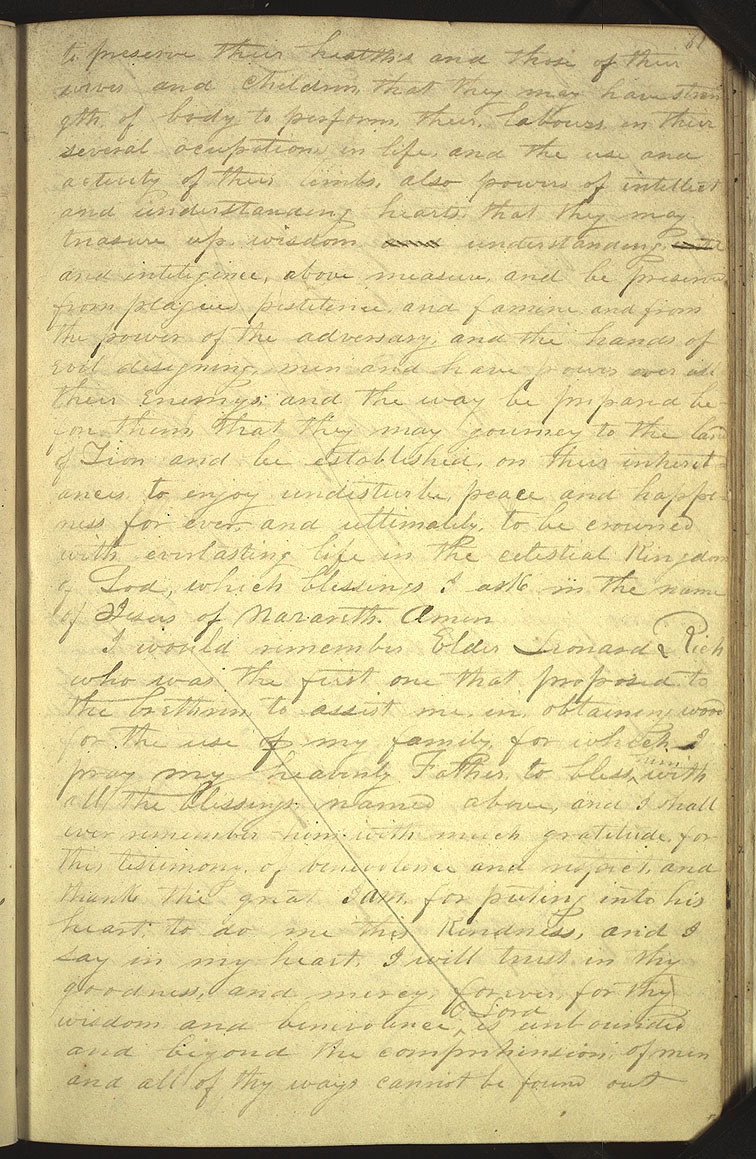 81
to preserve their healths and those of their
wives and children, that they may have stren
gth of body to perform their labours, in their
several ocupations in life, and the use and
activity of their limbs, also powers of intellect
and understanding hearts, that they may
treasure up wisdom understanding,
and inteligence, above measure, and be preserved
from plagues pestilence, and famine, and from
the power of the adversary, and the hands of
evil designing, men and have power over all
their enemys; and the way be prepared be-
fore them, that they may journey to the land
of Zion and be established, on their inherit-
ances, to enjoy undisturbe, peace and happi-
ness for ever, and ultimately, to be crowned
with everlasting life in the celestial Kingdom
of God, which blessings I ask in the name
of Jesus of Nazareth. Amen
I would remember Elder Leonard Rich
who was the first one that proposed to
the brethren to assist me, in, obtaining wood
for the use of my family, for which I
pray my heavenly Father, to bless, him with
all the blessings, named above, and I shall
ever remember him with much gratitude, for
this testimony, of benevolence and respect, and
thank the great I am, for puting into his
heart to do me this kindness, and I
say in my heart, I will trust in thy
goodness, and mercy, forever, for thy
wisdom and benevolence, O Lord is unbounded
and beyond the comprehension of men
and all of thy ways cannot be found out